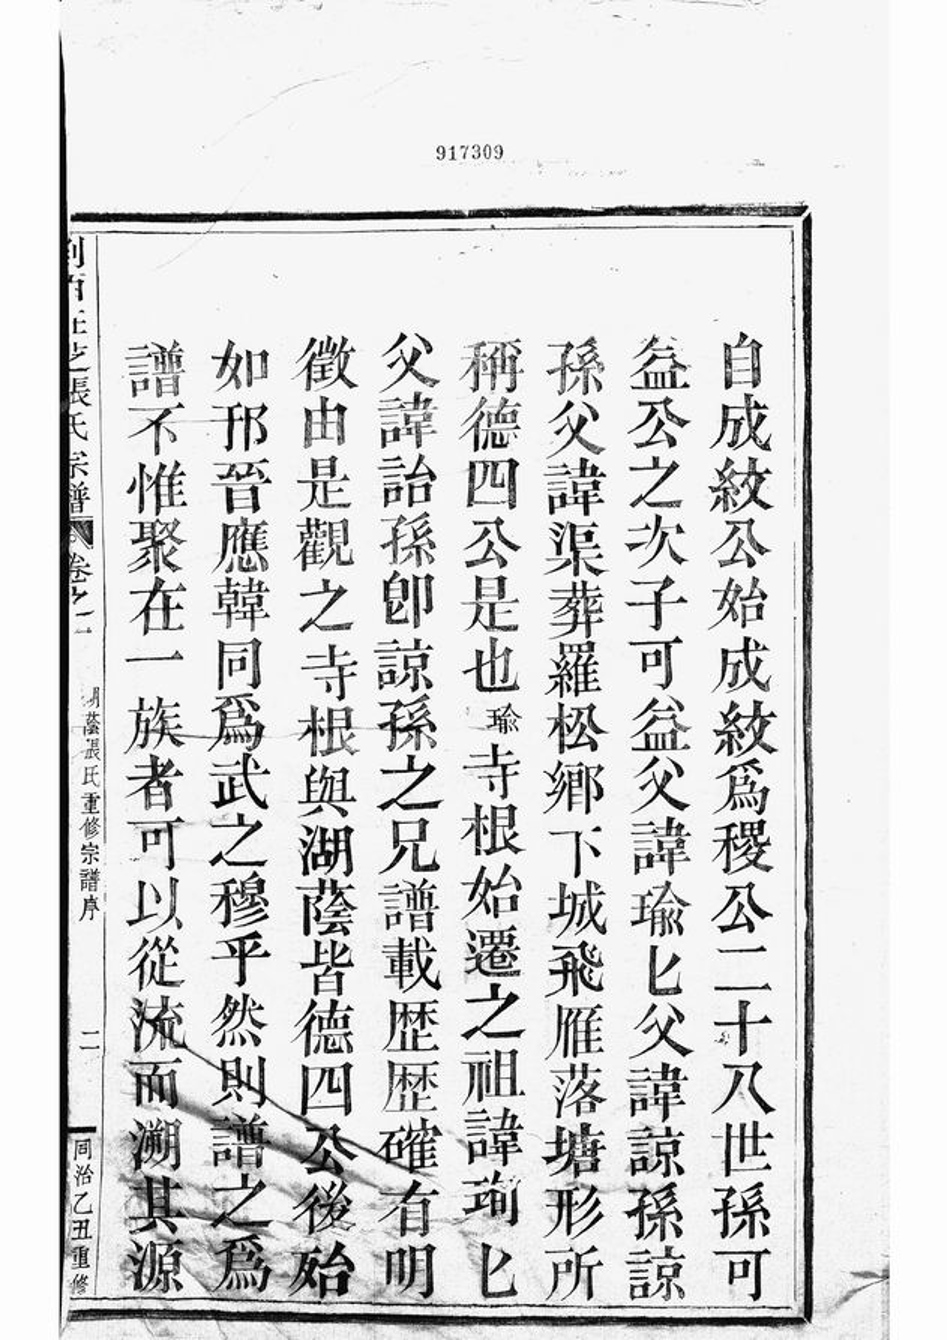 917309
自成紋公始成紋爲稷公二十八世孫可
益公之次子可益父諱瑜匕父諱諒孫諒
孫父諱渠葬羅松鄉下城飛雁落塘形所
稱德四公是也瑜寺根始遷之祖諱珣匕
父諱詒孫卽諒孫之兄譜載歴歴確有明
徵由是觀之寺根與湖蔭皆德四公後殆
如邘晉應韓同爲武之穆乎然則譜之爲
譜不惟聚在一族者可以從流而溯其源
張氏宗譜 卷之一
湖蔭張氏重修宗譜序
二
同治乙丑重修